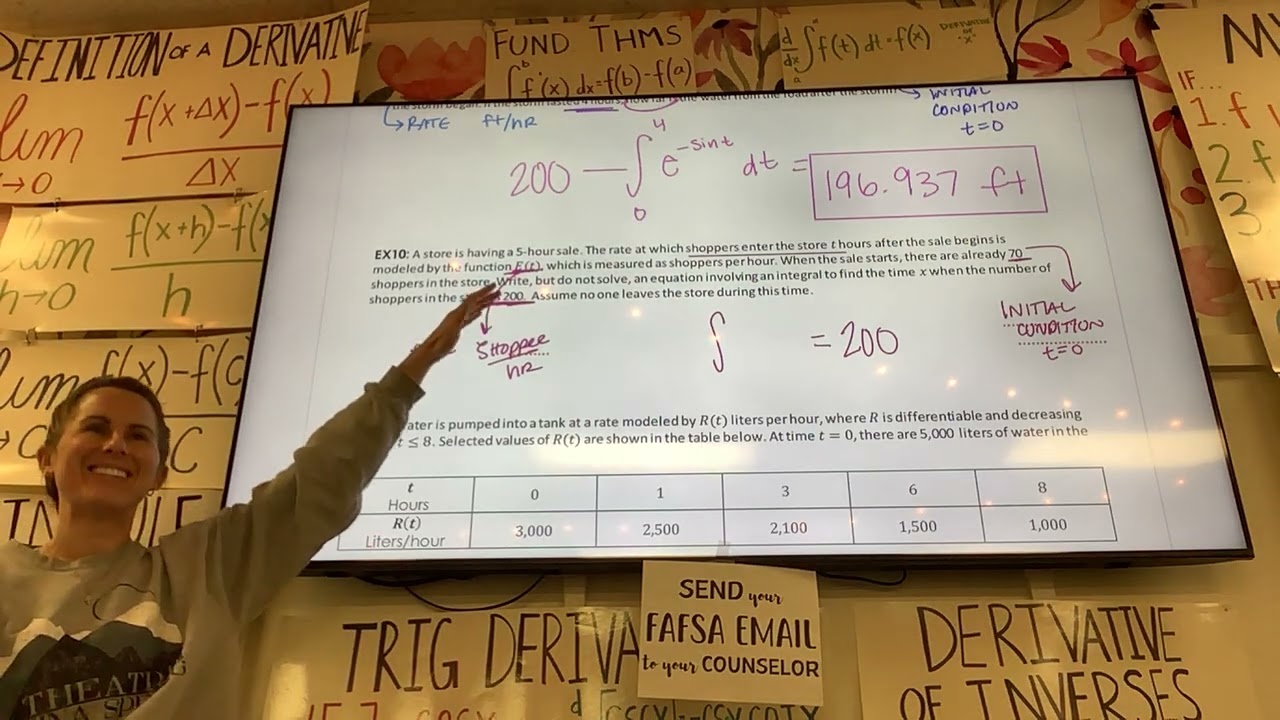 DEFINITION OF A DERIVATIVE
lim f(x+Δx)-f(x)
→0 Δx
lim f(x+h)-f(x
h→0 h
lim f(x)-f(c
→C -C
FUND THMS
∫ᵇ f'(x) dx = f(b)-f(a)
a
d/dx ∫ f(t) dt = f(x)
a
DERIVATIVE
OF
"X"
IF...
1. f
2. f
3.
TH
→RATE ft/HR
→ INITIAL
CONDITION
t=0
200 — ∫₀⁴ e^(-sint) dt = 196.937 ft
EX10: A store is having a 5-hour sale. The rate at which shoppers enter the store t hours after the sale begins is
modeled by the function , which is measured as shoppers per hour. When the sale starts, there are already 70
shoppers in the store. Write, but do not solve, an equation involving an integral to find the time x when the number of
shoppers in the 200. Assume no one leaves the store during this time.
SHOPPER
HR
∫ = 200
INITIAL
CONDITION
t=0
ater is pumped into a tank at a rate modeled by R(t) liters per hour, where R is differentiable and decreasing
t ≤ 8. Selected values of R(t) are shown in the table below. At time t = 0, there are 5,000 liters of water in the
t Hours 0 1 3 6 8
R(t) Liters/hour 3,000 2,500 2,100 1,500 1,000
SEND your
FAFSA EMAIL
to your COUNSELOR
TRIG DERIVA
DERIVATIVE
OF INVERSES